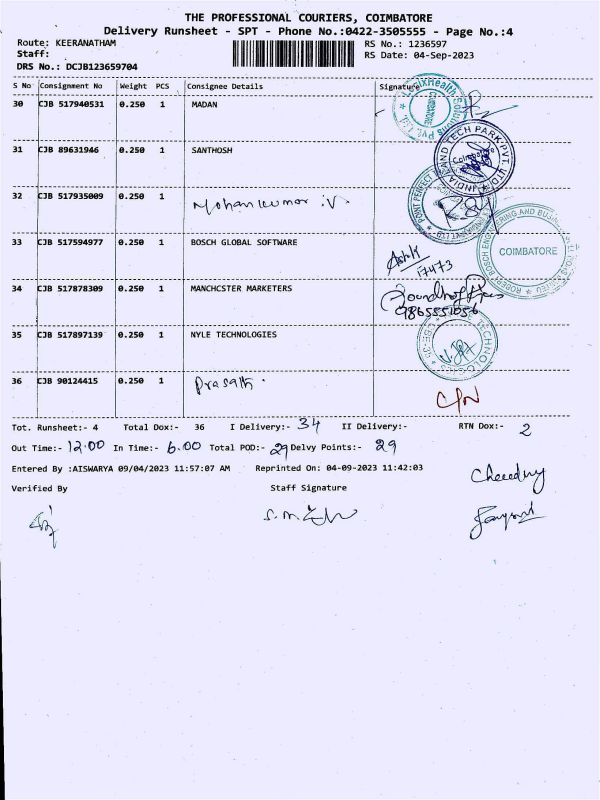 THE PROFESSIONAL COURIERS, COIMBATORE
Delivery Runsheet - SPT - Phone No.:0422-3505555 - Page No.:4
Route: KEERANATHAM
RS No.: 1236597
Staff:
RS Date: 04-Sep-2023
DRS No.: DCJB123659704
S No Consignment No Weight PCS Consignee Details Signature
30 CJB 517940531 0.250 1 MADAN
31 CJB 89631946 0.250 1 SANTHOSH
32 CJB 517935009 0.250 1 Mohankumar .V.
33 CJB 517594977 0.250 1 BOSCH GLOBAL SOFTWARE
COIMBATORE
Ashik
17473
34 CJB 517878309 0.250 1 MANCHCSTER MARKETERS
9865551056
35 CJB 517897139 0.250 1 NYLE TECHNOLOGIES
36 CJB 90124415 0.250 1 Prasath .
Tot. Runsheet:- 4 Total Dox:- 36 I Delivery:- 34 II Delivery:- RTN Dox:- 2
Out Time:- 12.00 In Time:- 6.00 Total POD:- 29 Delvy Points:- 29
Entered By :AISWARYA 09/04/2023 11:57:07 AM Reprinted On: 04-09-2023 11:42:03
Verified By Staff Signature